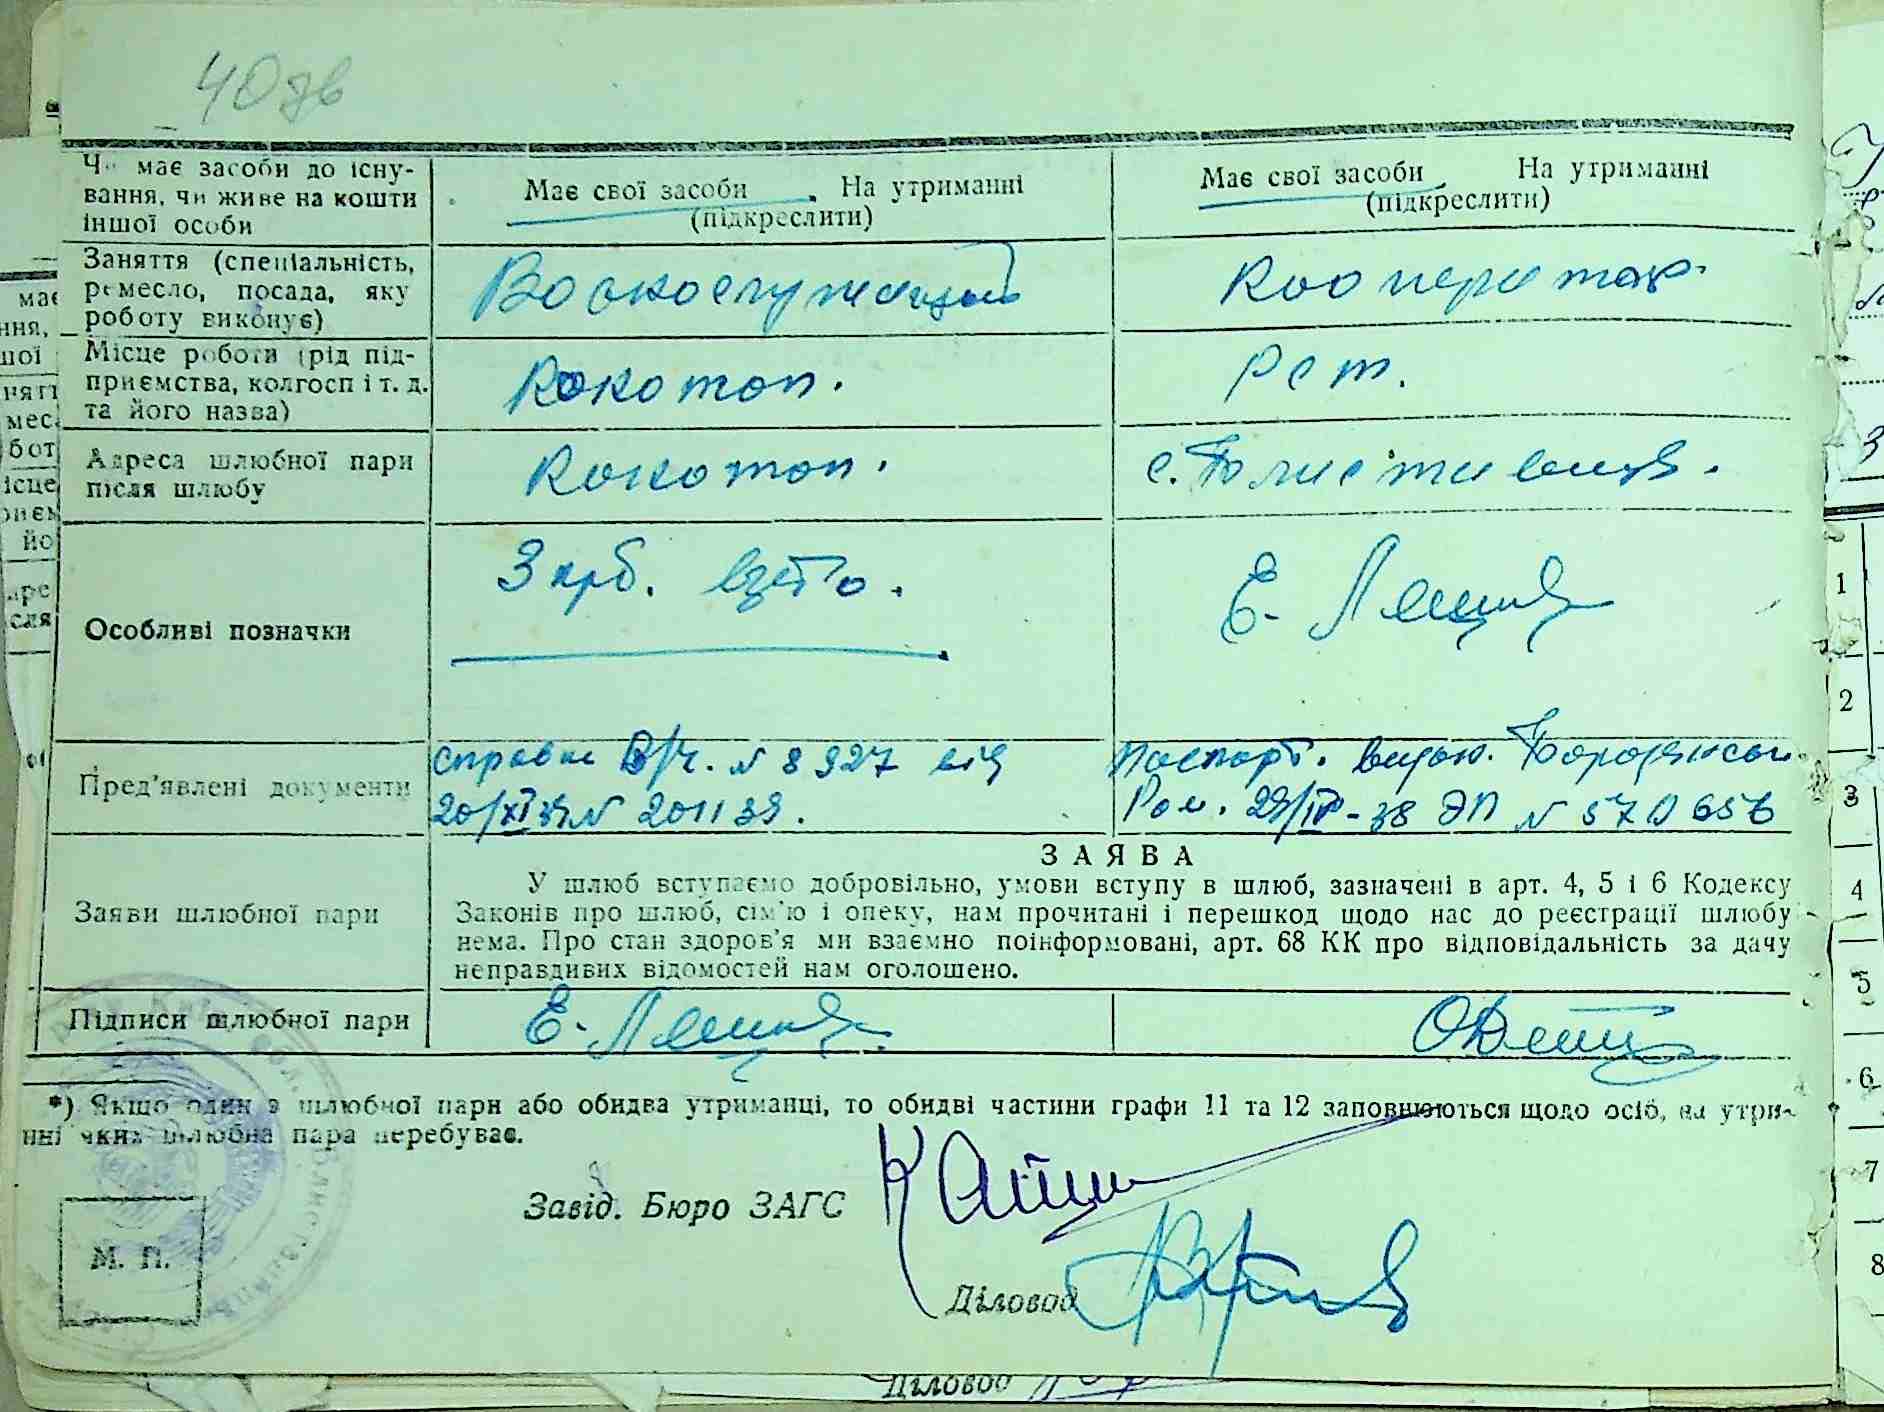 40 зв
Чи має засоби до існу-
вання, чи живе на кошти
іншої особи
Має свої засоби На утриманні
(підкреслити)
Має свої засоби На утриманні
(підкреслити)
Заняття (спеціальність,
ремесло, посада, яку
роботу виконує)
Воскослужащий
Кооператор
Місце роботи (рід під-
приємства, колгосп і т. д.
та його назва)
Конотоп.
Рст.
Адреса шлюбної пари
після шлюбу
Конотоп.
с.
Особливі позначки
3 крб. взято.
Е.
Пред'явлені документи
справка В/ч. № 8927 від
20/XI 39 № 201139.
Паспорт. видан. Бородянсом
29/IV-38 ЭП № 570656
Заяви шлюбної пари
ЗАЯВА
У шлюб вступаємо добровільно, умови вступу в шлюб, зазначені в арт. 4, 5 і 6 Кодексу
Законів про шлюб, сім'ю і опеку, нам прочитані і перешкод щодо нас до реєстрації шлюбу
нема. Про стан здоров'я ми взаємно поінформовані, арт. 68 КК про відповідальність за дачу
неправдивих відомостей нам оголошено.
Підписи шлюбної пари
Е.
*) Якщо один з шлюбної пари або обидва утриманці, то обидві частини графи 11 та 12 заповнюються щодо осіб, на утри-
нні яких шлюбна пара перебуває.
Завід. Бюро ЗАГС
М. П.
Діловод
Діловод
1
2
3
4
5
6
7
8